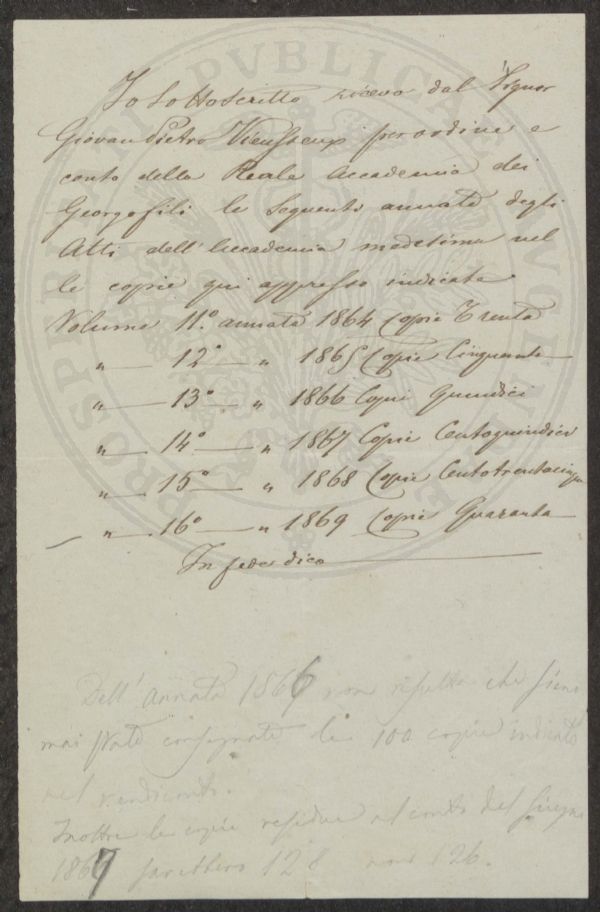 Io Sottoscritto ricevo dal Signor
Giovan Pietro Vieusseux per ordine e
conto della Reale Accademia dei
Georgofili le Seguenti annate degli
Atti dell'Accademia medesima nel
le copie qui appresso indicate
Volume 11.° annata 1864 Copie Trenta
" — 12° — " 1865 Copie Cinquanta
" — 13° — " 1866 Copie Quindici
" — 14° — " 1867 Copie Centoquindici
" — 15° — " 1868 Copie Centotrentacinque
" — 16° — " 1869 Copie Quaranta
In fede dico
Dell'annata 1866 non risulta che siano
mai state consegnate le 100 copie indicate
nel rendiconto.
Inoltre le copie residue al conto del Giugno
1867 sarebbero 128 non 126.
PROSPERITATI PVBLICAE AVGENDAE